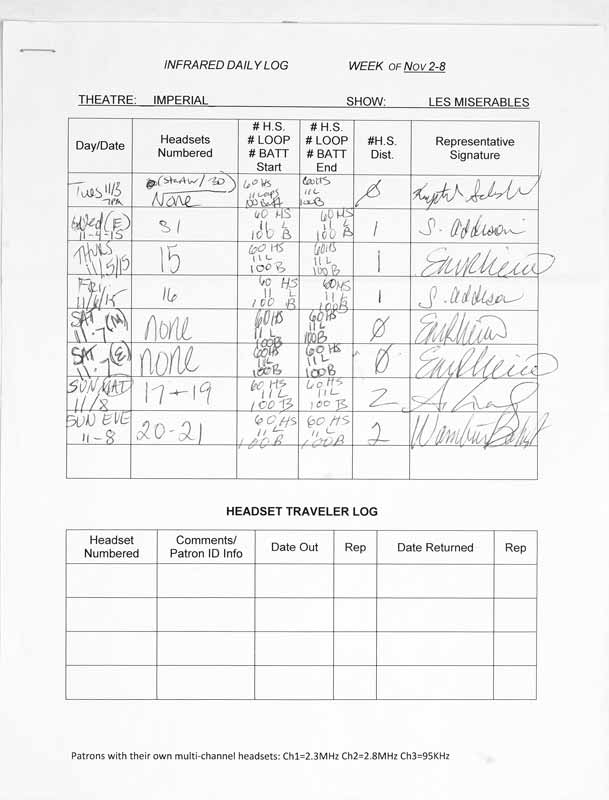 INFRARED DAILY LOG WEEK OF NOV 2-8
THEATRE: IMPERIAL SHOW: LES MISERABLES
Day/Date Headsets Numbered # H.S. # LOOP # BATT Start # H.S. # LOOP # BATT End #H.S. Dist. Representative Signature
Tues 11/3 7PM (Start w/ 30) None 60 HS 11 Loops 100 Batt 60 HS 11 L 100B Ø
Wed (E) 11-4-15 31 60 HS 11 L 100 B 60 HS 11 L 100 B 1 S. Addison
THURS 11/5/15 15 60 HS 11 L 100B 60HS 11 L 100B 1
FRI 11/6/15 16 60 HS 11 L 100 B 60HS 11 L 100 B 1 S. Addison
SAT 11-7 (M) none 60HS 11L 100B 60HS 11L 100B Ø
SAT 11-7 (E) none 60HS 11L 100B 60HS 11L 100B Ø
SUN MAT 11/8 17+19 60 HS 11 L 100 B 60 HS 11 L 100B 2
SUN EVE 11-8 20-21 60 HS 11 L 100B 60 HS 11 L 100B 2
HEADSET TRAVELER LOG
Headset Numbered Comments/ Patron ID Info Date Out Rep Date Returned Rep
Patrons with their own multi-channel headsets: Ch1=2.3MHz Ch2=2.8MHz Ch3=95KHz